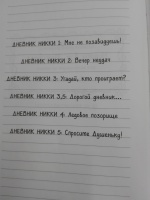 ДНЕВНИК НИККИ 1: Мне не позавидуешь!
ДНЕВНИК НИККИ 2: Вечер неудач
ДНЕВНИК НИККИ 3: Угадай, кто проиграл?
ДНЕВНИК НИККИ 3,5: Дорогой дневник...
ДНЕВНИК НИККИ 4: Ледовое позорище
ДНЕВНИК НИККИ 5: Спросите Душеньку!